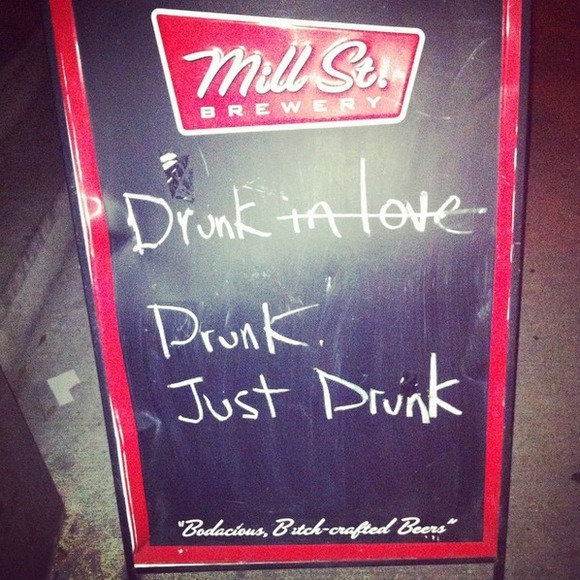 Mill St.
BREWERY
Drunk in love
Drunk.
Just Drunk
"Bodacious, B tch-crafted Beers"